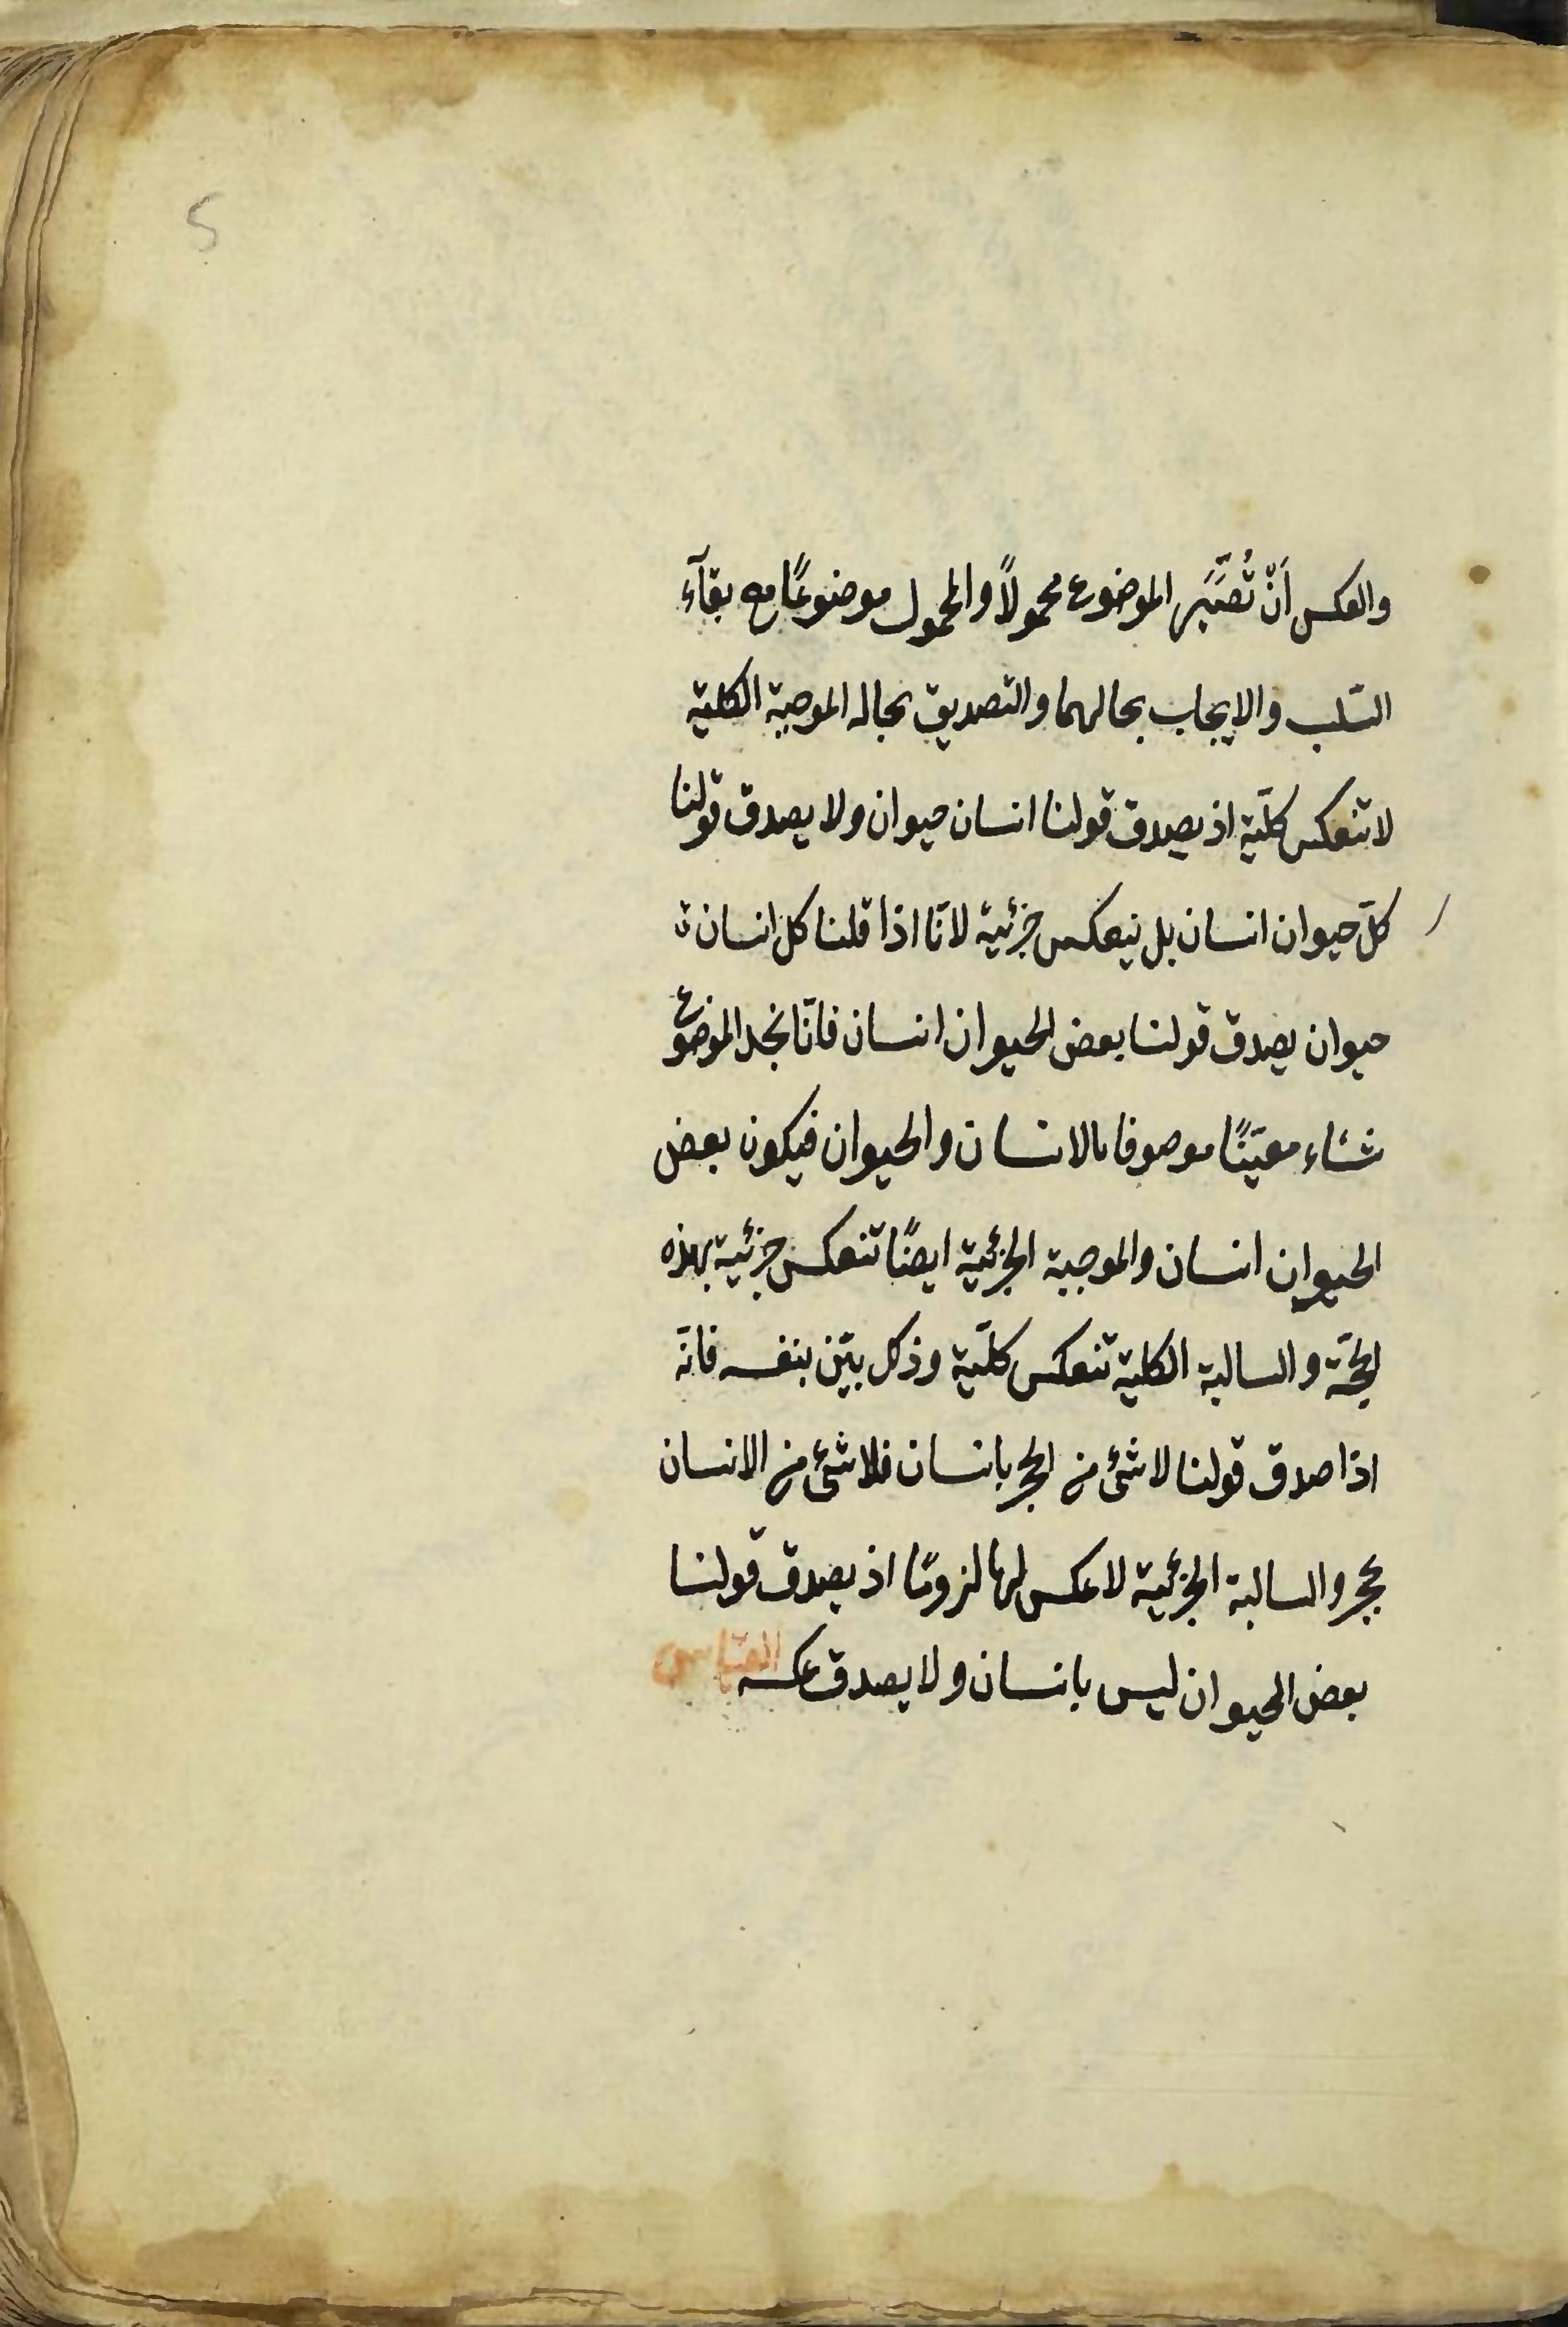 5
والعكس اَنّ تُصَيَّر الموضوع محمولاً والمحمول موضوعًا مع بقآء
السّلب والايجاب بحالهما والتصديق بحاله الموجبة الكلية
لا تنعكس كلّية اذ يصدق قولنا انسان حيوان ولا يصدق قولنا
كلّ حيوان انسان بل ينعكس جزئية لانّا اذا قلنا كل انسان
حيوان يصدق قولنا بعض الحيوان انسان فانّا نجد الموضوع
شاء معيّنًا موصوفا بالانسان والحيوان فيكون بعض
الحيوان انسان والموجبة الجزئية ايضًا تنعكس جزئية بهذه
الحجّة والسالبة الكلية تنعكس كلّية وذلك بيّن بنفسه فانّه
اذا صدق قولنا لا شئ من الحجر بانسان فلا شئ من الانسان
بحجر والسالبة الجزئية لا عكس لها لزومًا اذ يصدق قولنا
بعض الحيوان ليس بانسان ولا يصدق عكسه القياس